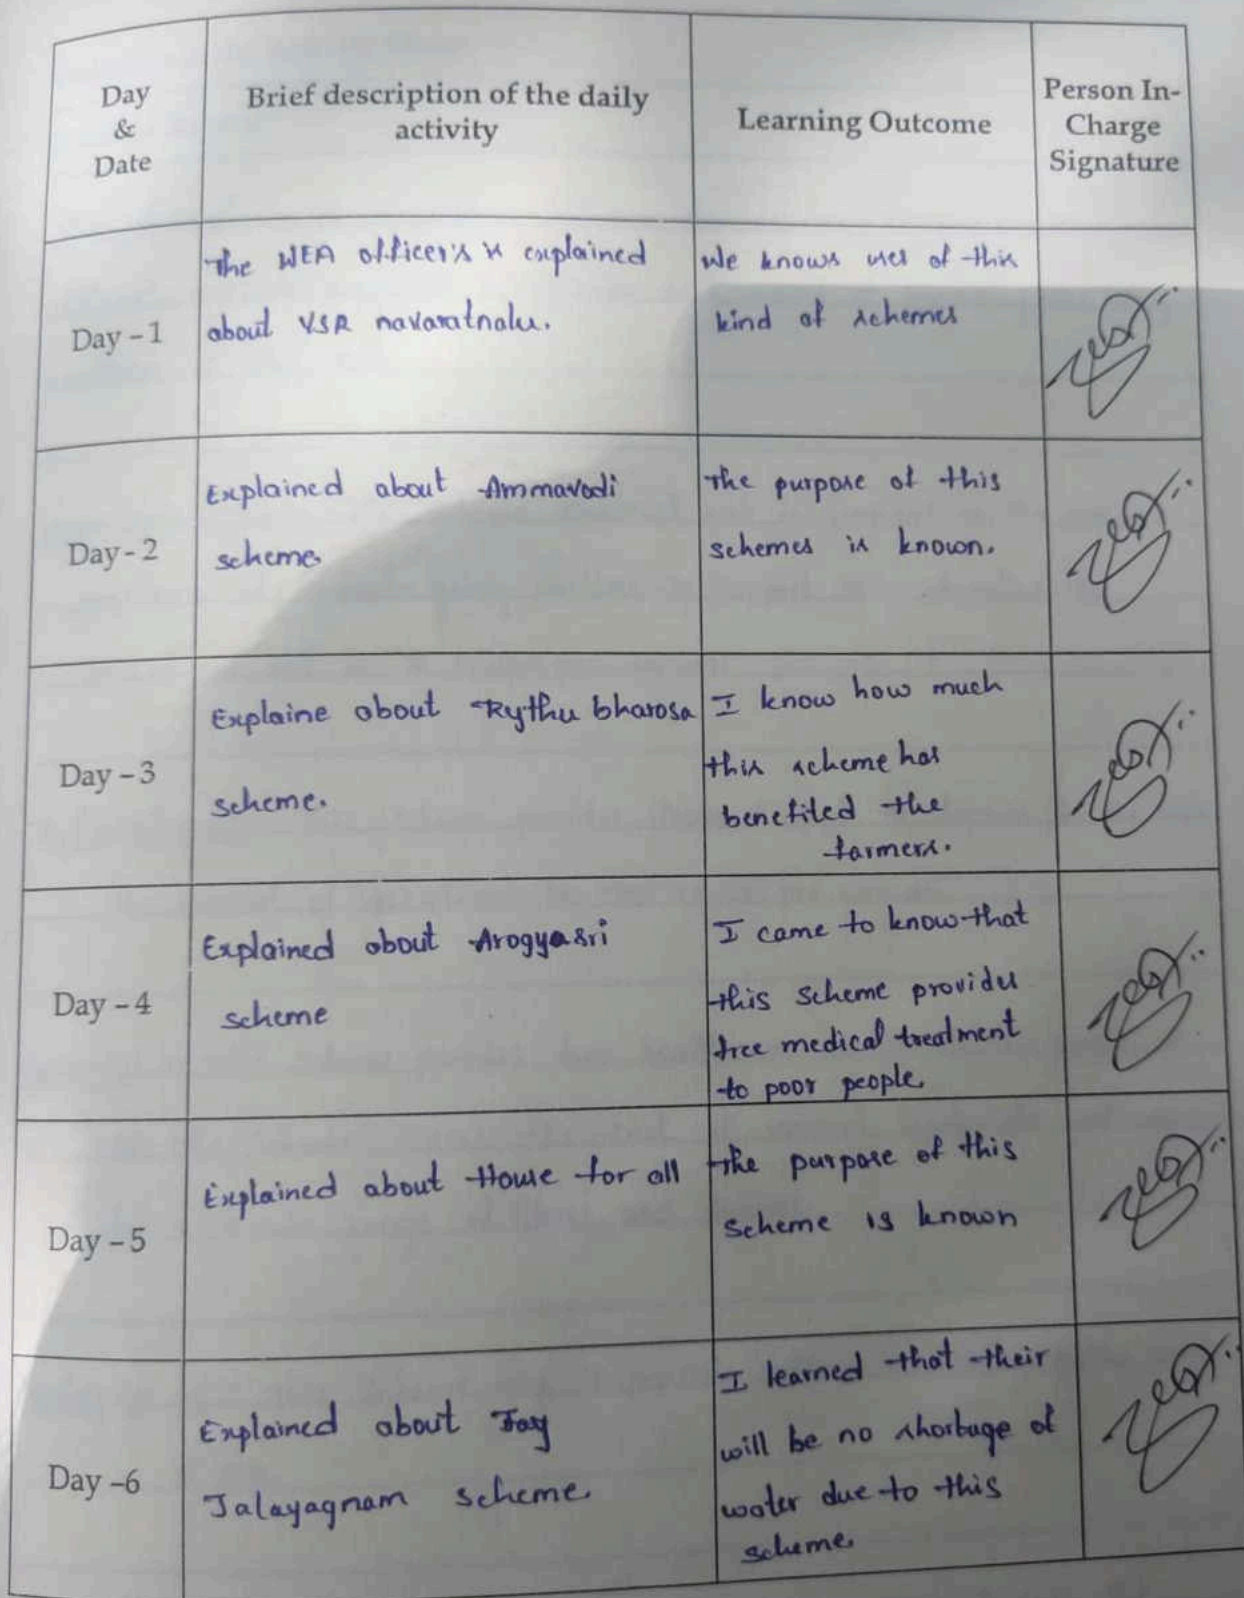 Day
&
Date
Brief description of the daily
activity
Learning Outcome
Person In-
Charge
Signature
Day - 1
The WEA officer's is explained
about YSR navaratnalu.
We knows uses of this
kind of schemes
Day - 2
Explained about Ammavodi
scheme.
The purpose of this
schemes is known.
Day - 3
Explaine about Rythu bharosa
scheme.
I know how much
this scheme has
benefited the
farmers.
Day - 4
Explained about Arogyasri
scheme
I came to know that
this scheme provides
free medical treatment
to poor people.
Day - 5
Explained about House for all
The purpose of this
scheme is known
Day -6
Explained about
Jalayagnam scheme.
I learned that their
will be no shortage of
water due to this
scheme.